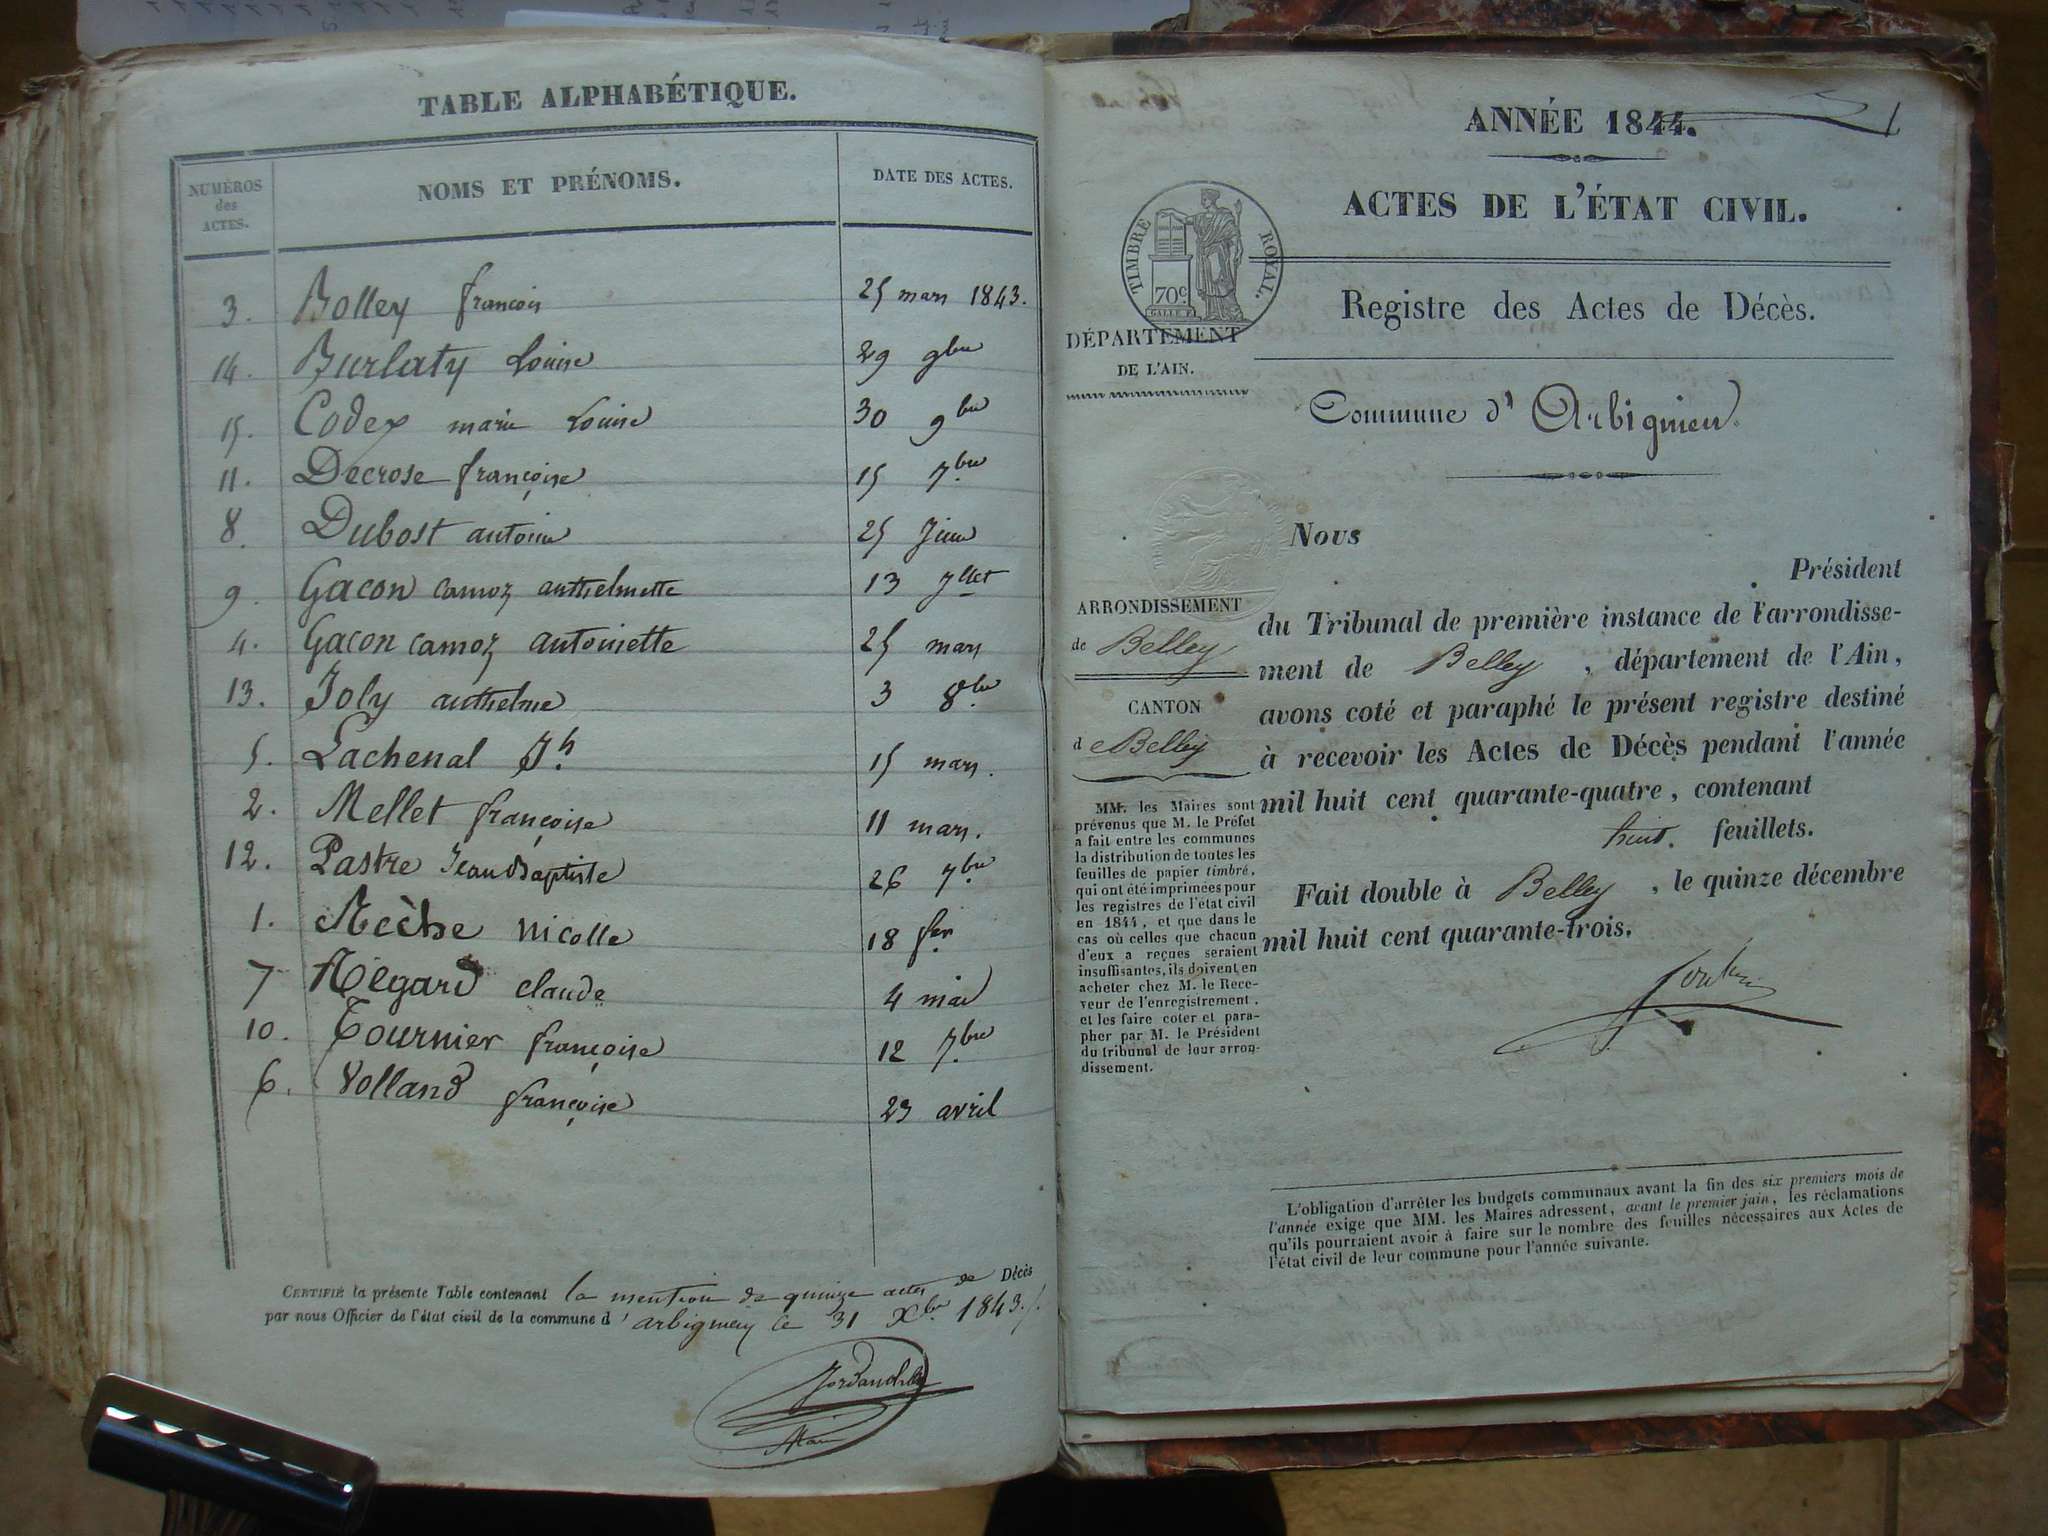 TABLE ALPHABÉTIQUE.
NUMÉROS des ACTES. NOMS ET PRÉNOMS. DATE DES ACTES.
3. Bolley françois 25 mars 1843.
14. Burlaty Louise 29 9bre
15. Codex marie Louise 30 9bre
11. Decrose françoise 15 7bre
8. Dubost antoine 25 Juin
9. Gacon camoz anthelmette 13 Jllet
4. Gacon camoz antoinette 25 mars
13. Joly anthelme 3 8bre
5. Lachenal Jh. 15 mars.
2. Mellet françoise 11 mars.
12. Pastre Jean Baptiste 26 7bre
1. Rèche Nicolle 18 fer.
7 Régard claude 4 mai
10. Tournier françoise 12 7bre
6. Volland françoise 23 avril
CERTIFIÉ la présente Table contenant la mention de quinze actes de Décès
par nous Officier de l'état civil de la commune d'arbignieu le 31 Xbre 1843./.
Maire
ANNÉE 1844.
1
ACTES DE L'ÉTAT CIVIL.
TIMBRE ROYAL.
70c
Registre des Actes de Décès.
DÉPARTEMENT
DE L'AIN.
Commune d'Arbignieu.
ARRONDISSEMENT
de Belley
CANTON
de Belley
MM. les Maires sont
prévenus que M. le Préfet
a fait entre les communes
la distribution de toutes les
feuilles de papier timbré,
qui ont été imprimées pour
les registres de l'état civil
en 1844, et que dans le
cas où celles que chacun
d'eux a reçues seraient
insuffisantes, ils doivent en
acheter chez M. le Rece-
veur de l'enregistrement,
et les faire coter et para-
pher par M. le Président
du tribunal de leur arron-
dissement.
Nous
Président
du Tribunal de première instance de l'arrondisse-
ment de Belley, département de l'Ain,
avons coté et paraphé le présent registre destiné
à recevoir les Actes de Décès pendant l'année
mil huit cent quarante-quatre, contenant
huit. feuillets.
Fait double à Belley, le quinze décembre
mil huit cent quarante-trois.
L'obligation d'arrêter les budgets communaux avant la fin des six premiers mois de
l'année exige que MM. les Maires adressent, avant le premier juin, les réclamations
qu'ils pourraient avoir à faire sur le nombre des feuilles nécessaires aux Actes de
l'état civil de leur commune pour l'année suivante.